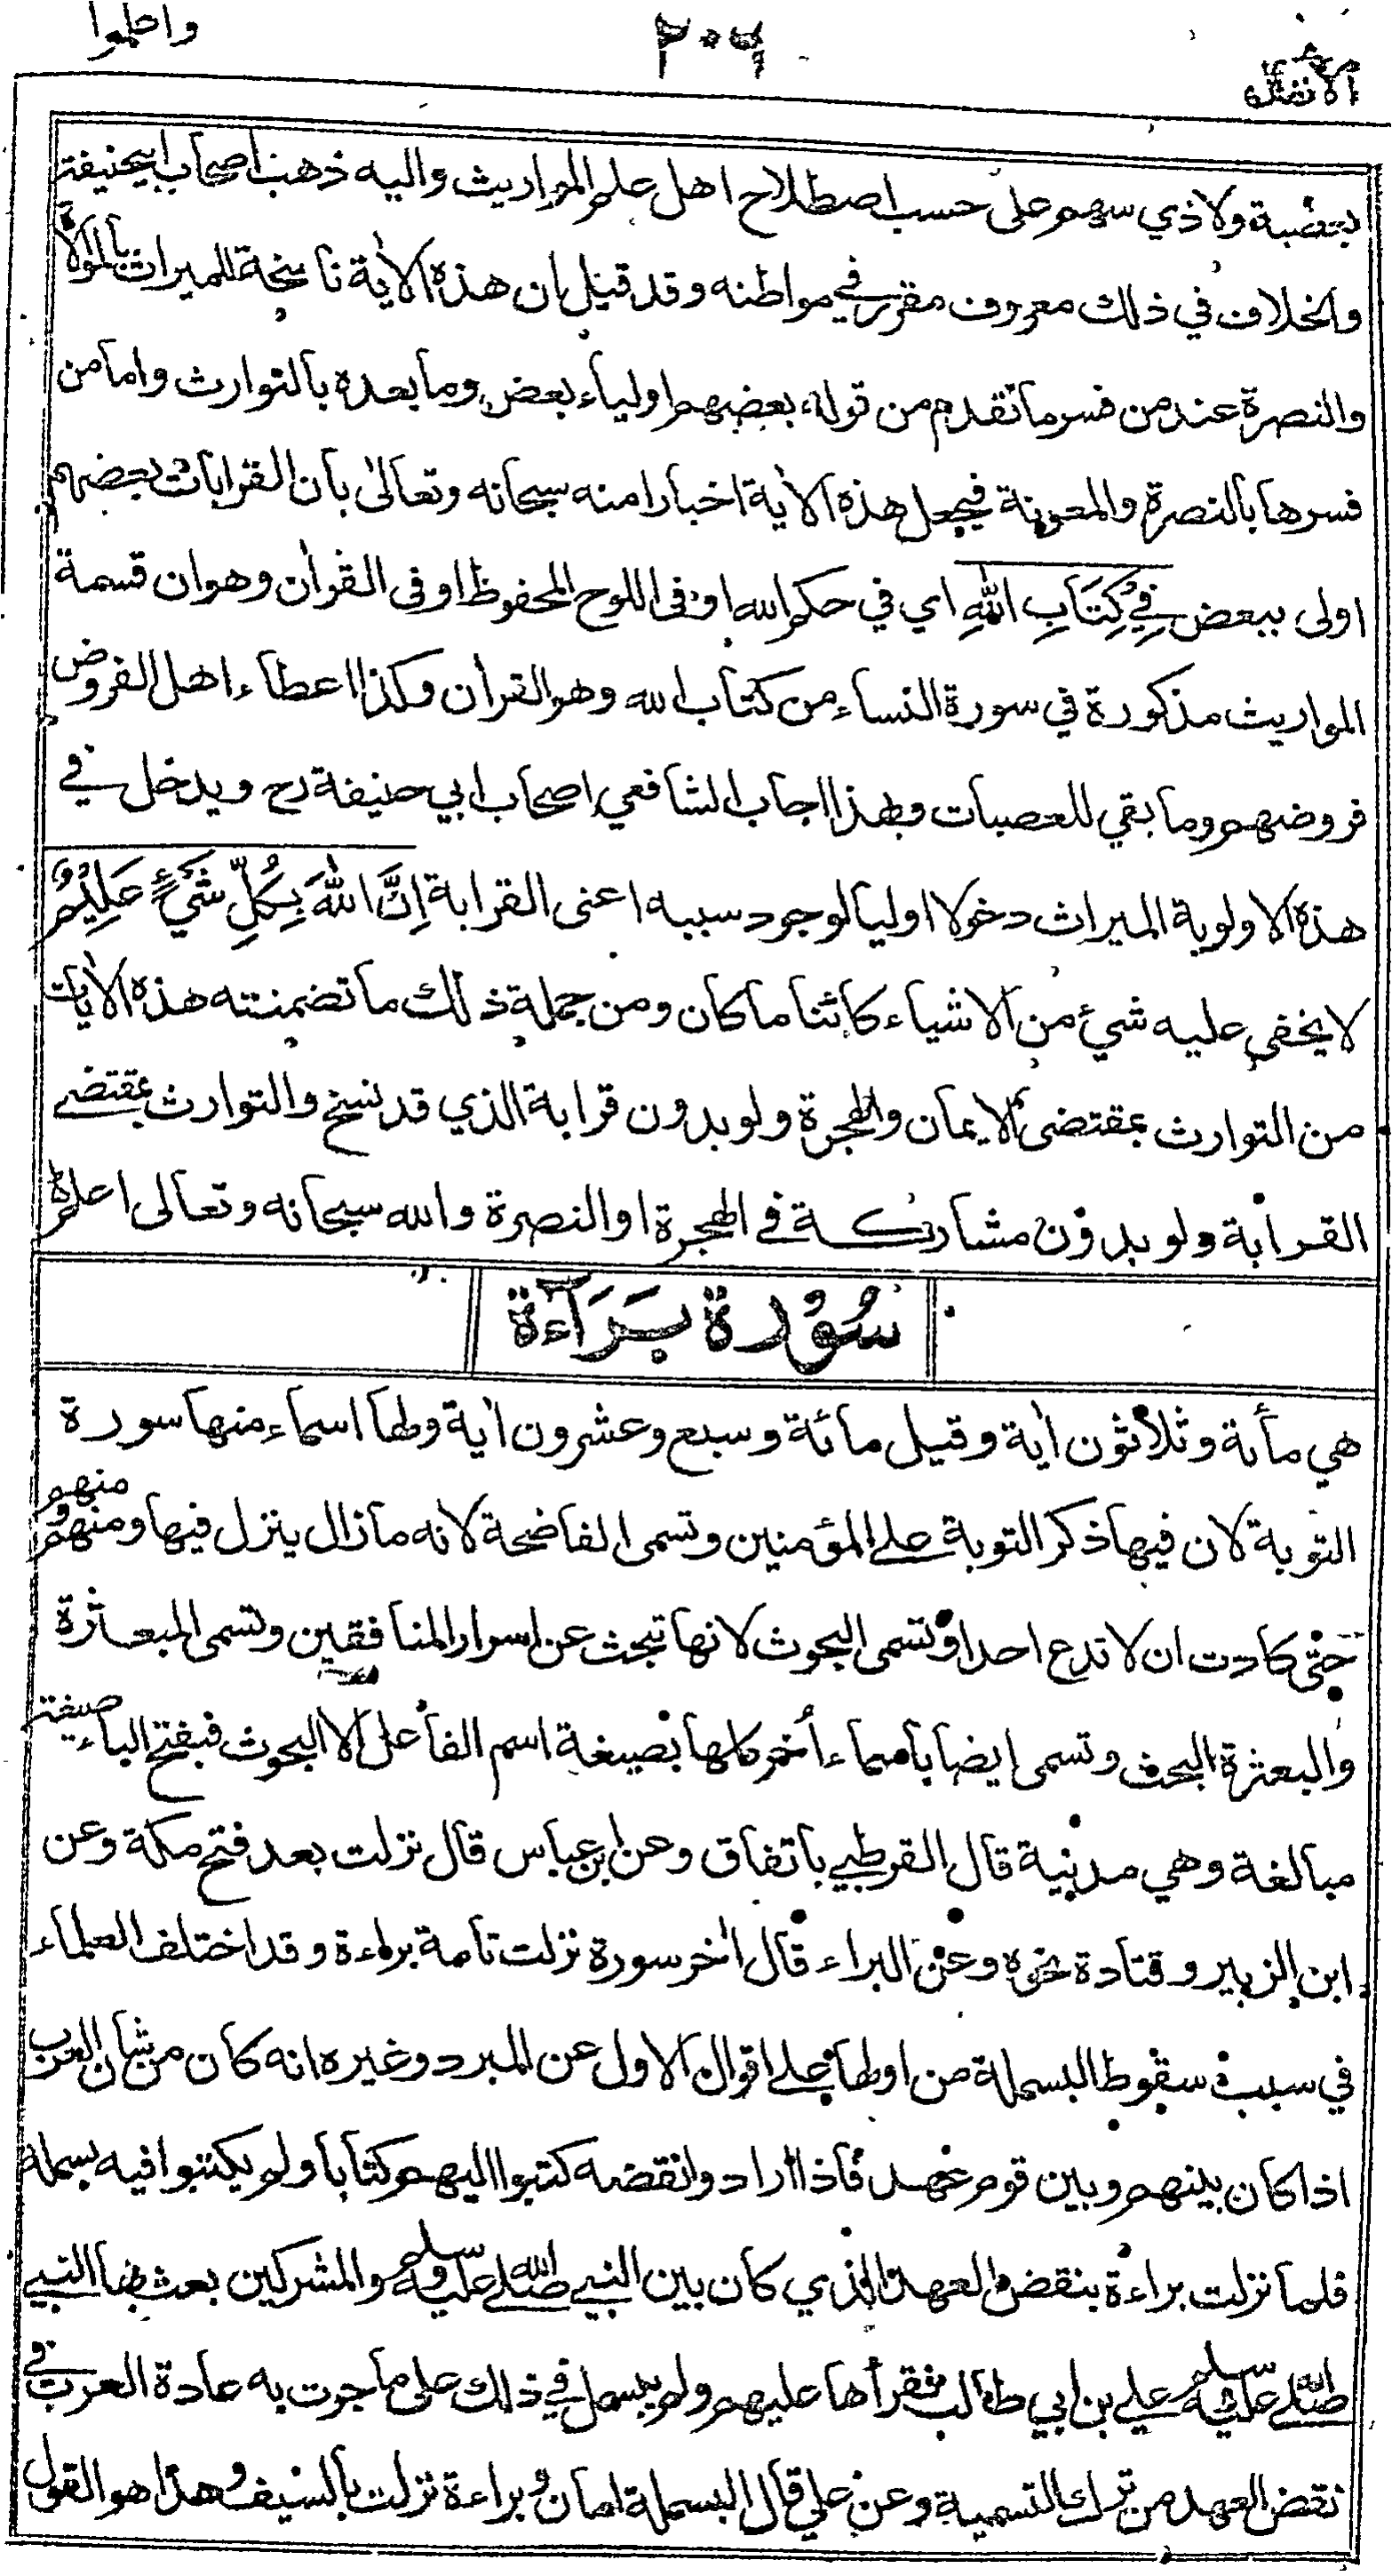 واعلموا ٢٠٦ الانفال
بعصبة ولا ذي سهم على حسب اصطلاح اهل علم المواريث واليه ذهب اصحاب ابيحنيفة
والخلاف في ذلك معروف مقرر في مواطنه وقد قيل ان هذه الاية ناسخة للميراث بالموالاة
والنصرة عند من فسر ما تقدم من قوله بعضهم اولياء بعض وما بعده بالتوارث واما من
فسرها بالنصرة والمعونة فيجعل هذه الاية اخبارا منه سبحانه وتعالى بان القرابات بعضهم
اولى ببعض فِيْ كِتَابِ اللّٰهِ اي في حكم الله او في اللوح المحفوظ او في القرأن وهو ان قسمة
المواريث مذكورة في سورة النساء من كتاب الله وهو القرأن وكذا اعطاء اهل الفروض
فروضهم وما بقي للعصبات وبهذا اجاب الشافعي اصحاب ابي حنيفة رح ويدخل في
هذه الاولوية الميراث دخولا اوليا لوجود سببه اعنى القرابة اِنَّ اللّٰهَ بِكُلِّ شَيْءٍ عَلِيْمٌ
لا يخفى عليه شيء من الاشياء كائنا ما كان ومن جملة ذلك ما تضمنته هذه الأيات
من التوارث بمقتضى الايمان والهجرة ولو بدون قرابة الذي قد نسخ والتوارث بمقتضى
القرابة ولو بدون مشاركة في الهجرة او النصرة والله سبحانه وتعالى اعلم
سُوْرة بَرَآءة
هي مأئة وثلاثون أية وقيل مائة وسبع وعشرون أية ولها اسماء منها سورة
التوبة لان فيها ذكر التوبة على المؤمنين وتسمى الفاضحة لانه ما زال ينزل فيها ومنهم ومنهم
حتى كادت ان لا تدع احدا وتسمى البحوث لانها تبحث عن اسرار المنافقين وتسمى المبعثرة
والبعثرة البحث وتسمى ايضا باسماء أخر كلها بصيغة اسم الفاعل الا البحوث فبفتح الباء صيغة
مبالغة وهي مدنية قال القرطبي باتفاق وعن ابن عباس قال نزلت بعد فتح مكة وعن
ابن الزبير وقتادة نحوه وعن البراء قال أخر سورة نزلت تامة براءة وقد اختلف العلماء
في سبب سقوط البسملة من اولها على اقوال الاول عن المبرد وغيره انه كان من شان العرب
اذا كان بينهم وبين قوم عهد فاذا ارادوا نقضه كتبوا اليهم كتابا ولم يكتبوا فيه بسملة
فلما نزلت براءة بنقض العهد الذي كان بين النبي صلى الله عليه وسلم والمشركين بعث بها النبي
صلى الله عليه وسلم علي بن ابي طالب فقرأها عليهم ولم يبسمل في ذلك على ما جرت به عادة العرب في
نقض العهد من ترك التسمية وعن علي قال البسملة امان وبراءة نزلت بالسيف وهذا هو القول